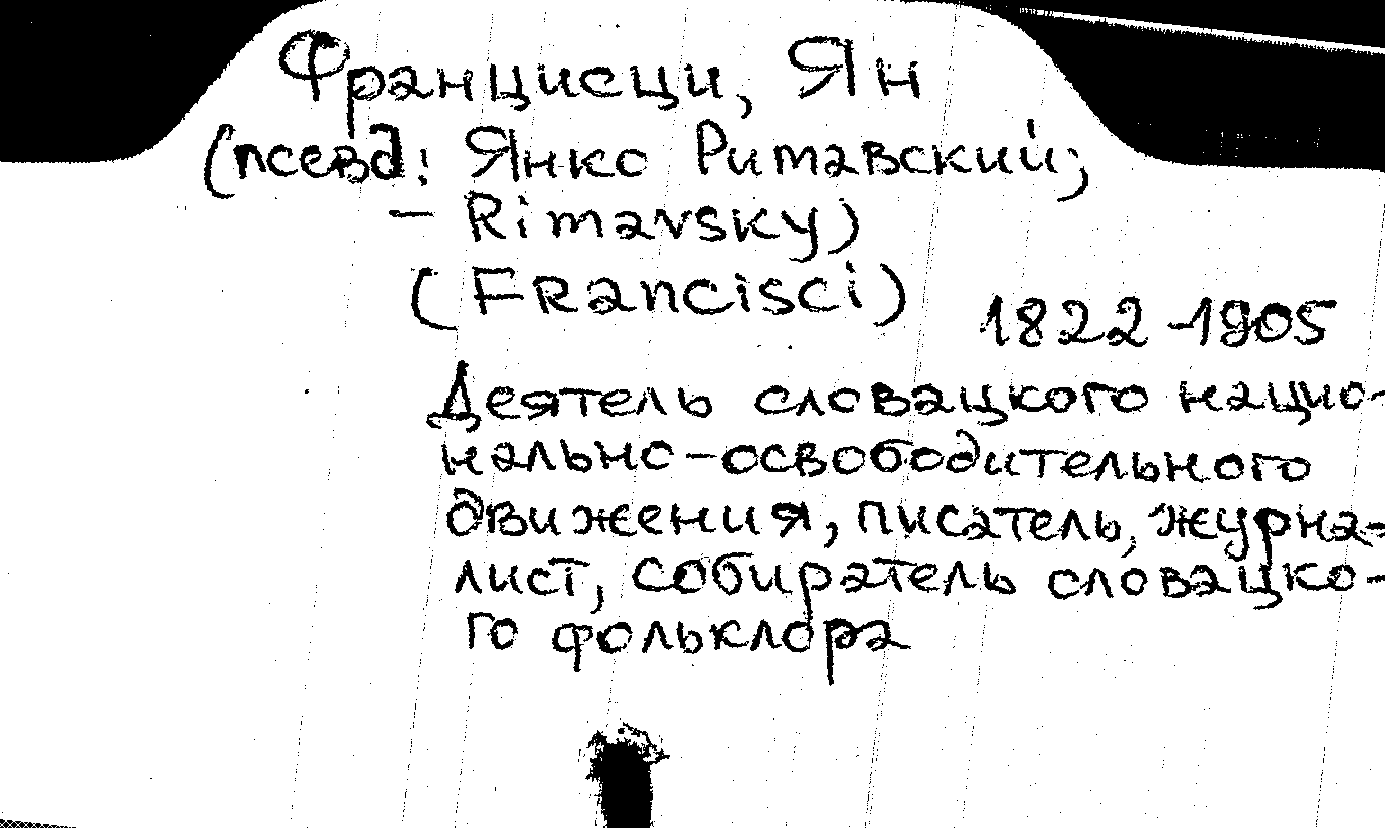 Францисци, Ян
(псевд: Янко Римавский;
– Rimavsky)
(Francisci)
1822-1905
Деятель словацкого нацио-
нально-освободительного
движения, писатель, журна-
лист, собиратель словацко-
го фольклора